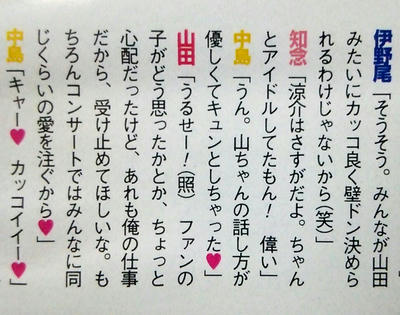 伊野尾「そうそう。みんなが山田
みたいにカッコ良く壁ドン決めら
れるわけじゃないから(笑)」
知念「涼介はさすがだよ。ちゃん
とアイドルしてたもん! 偉い」
中島「うん。山ちゃんの話し方が
優しくてキュンとしちゃった♥」
山田「うるせー!(照) ファンの
子がどう思ったかとか、ちょっと
心配だったけど、あれも俺の仕事
だから、受け止めてほしいな。も
ちろんコンサートではみんなに同
じくらいの愛を注ぐから♥」
中島「キャー♥ カッコイイー♥」